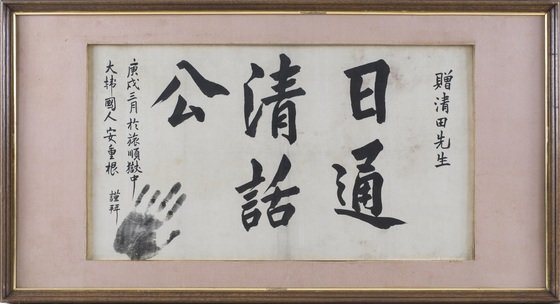 贈清田先生
日通
清話
公
庚戌三月 於旅順獄中
大韓國人 安重根 謹拜